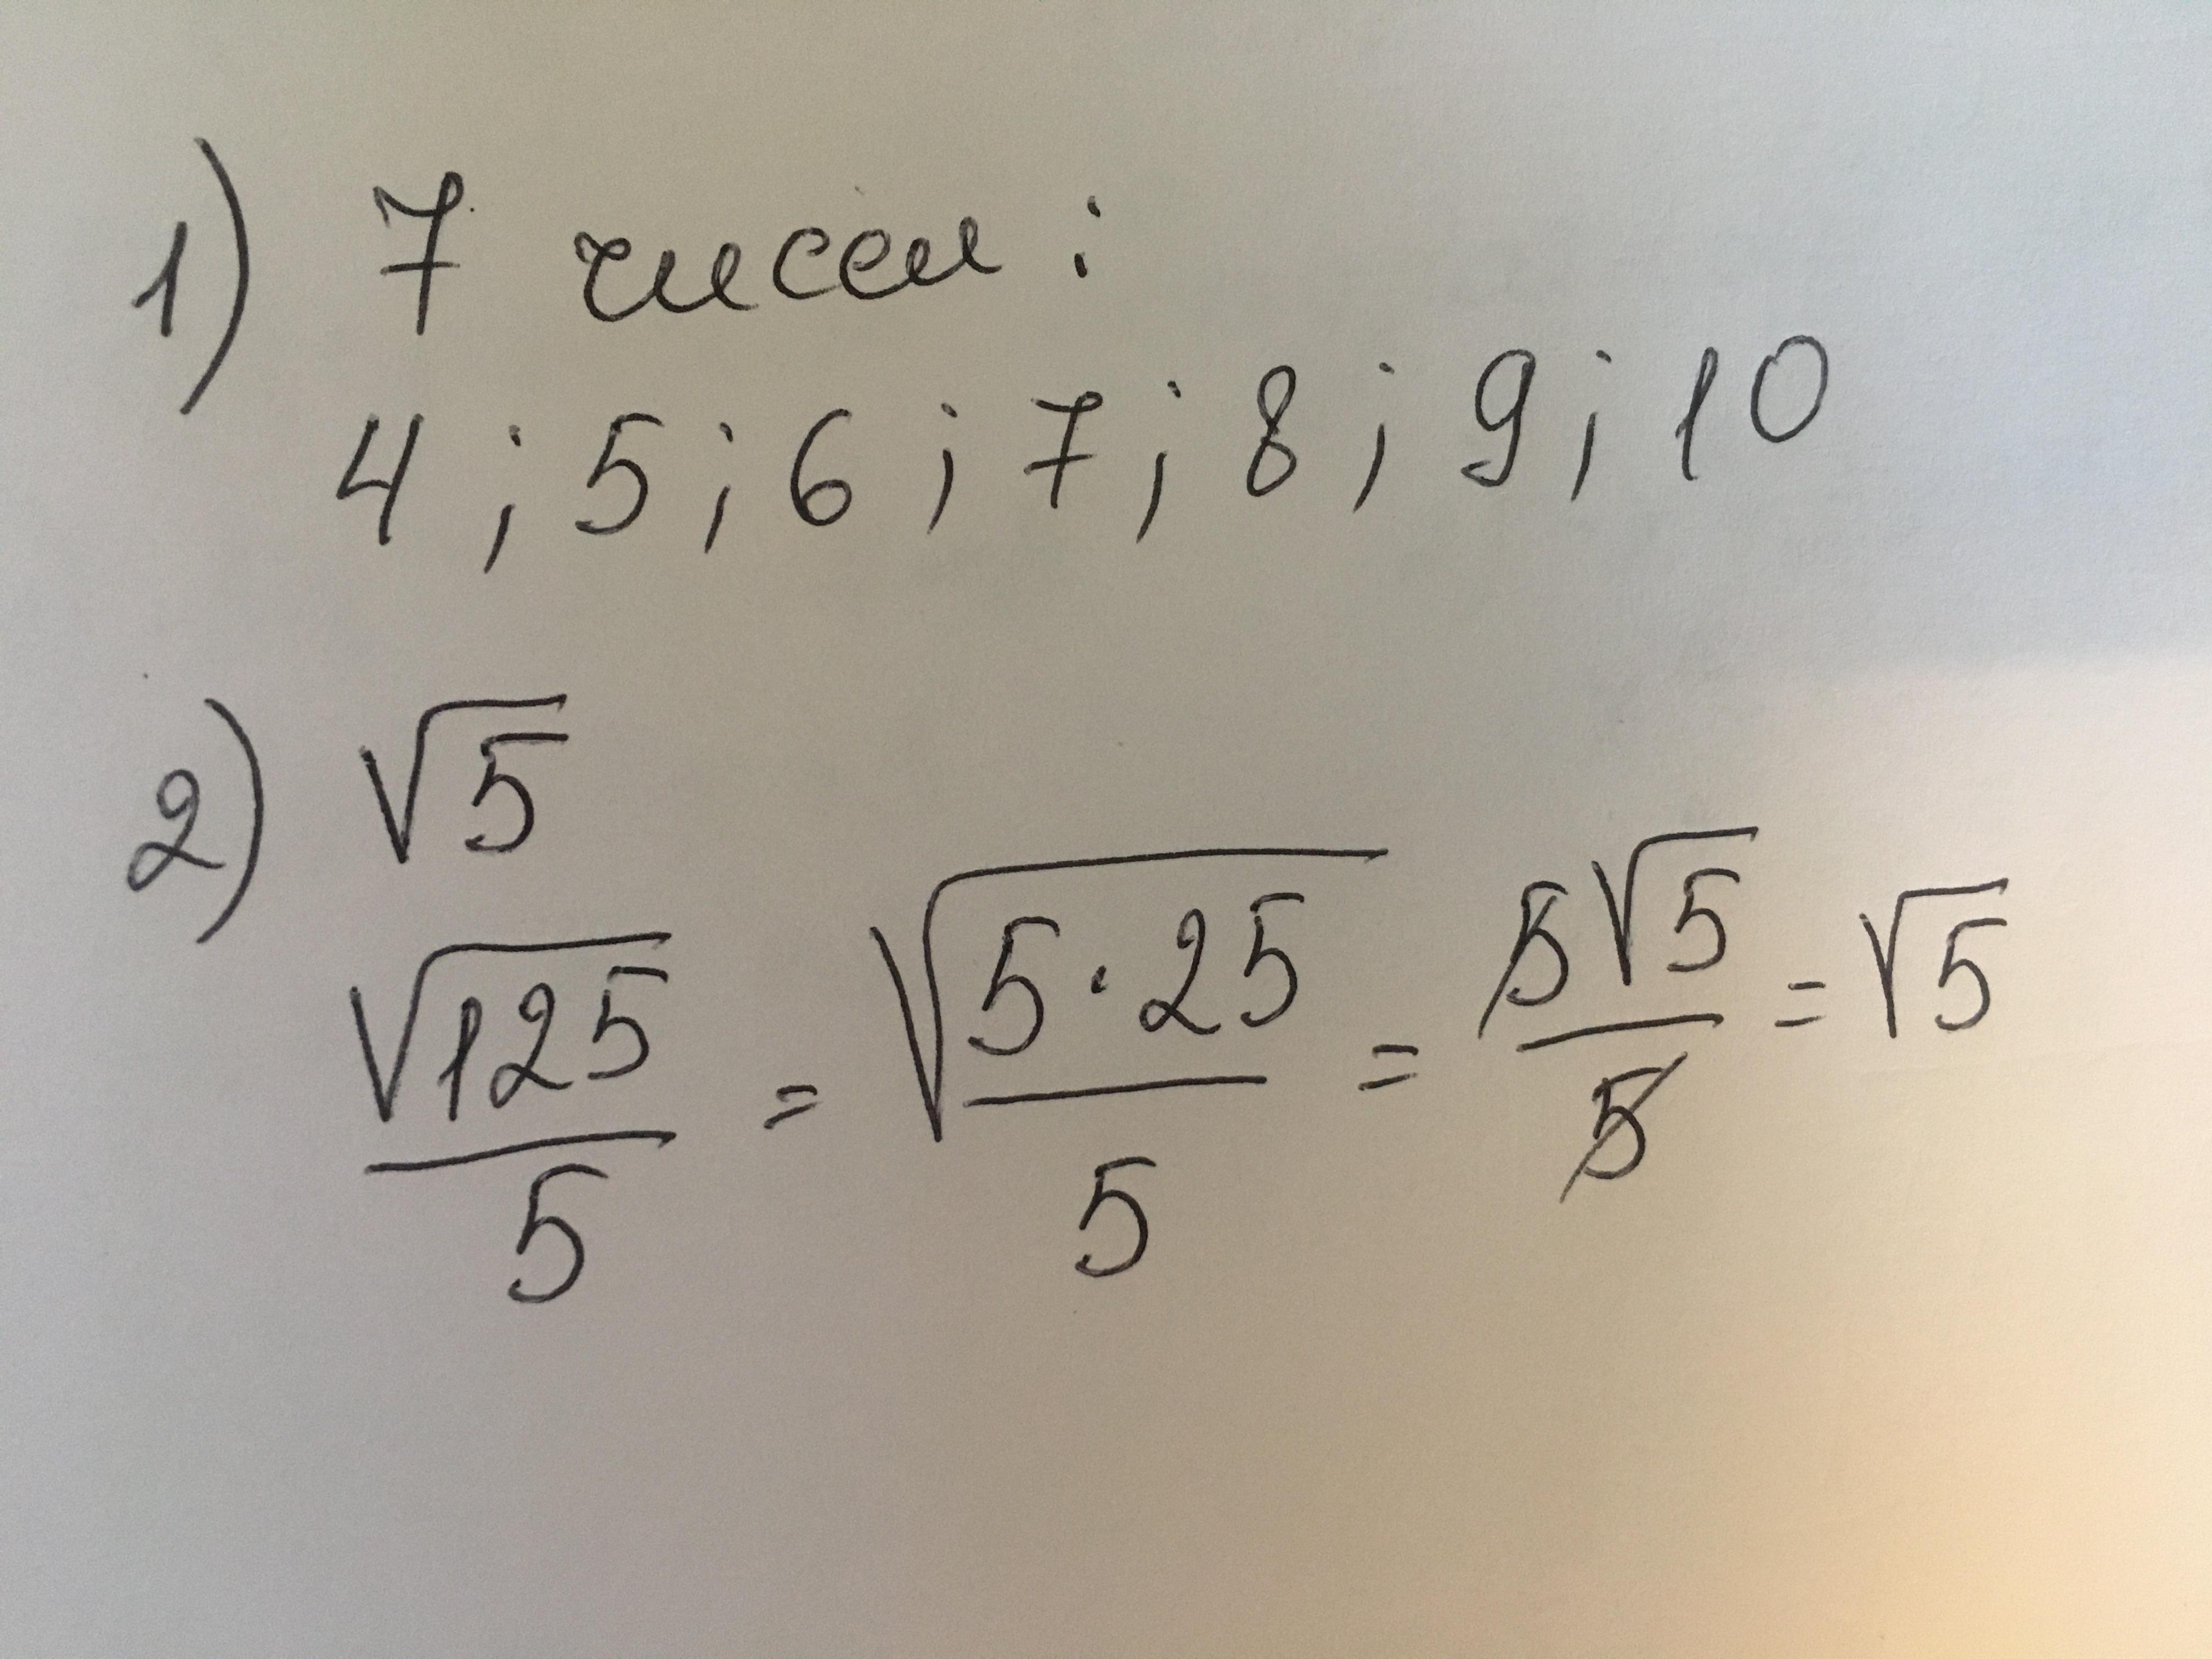 1) 7 чисел:
4; 5; 6; 7; 8; 9; 10
2) √5
√125/5 = √(5·25)/5 = 5√5/5 = √5